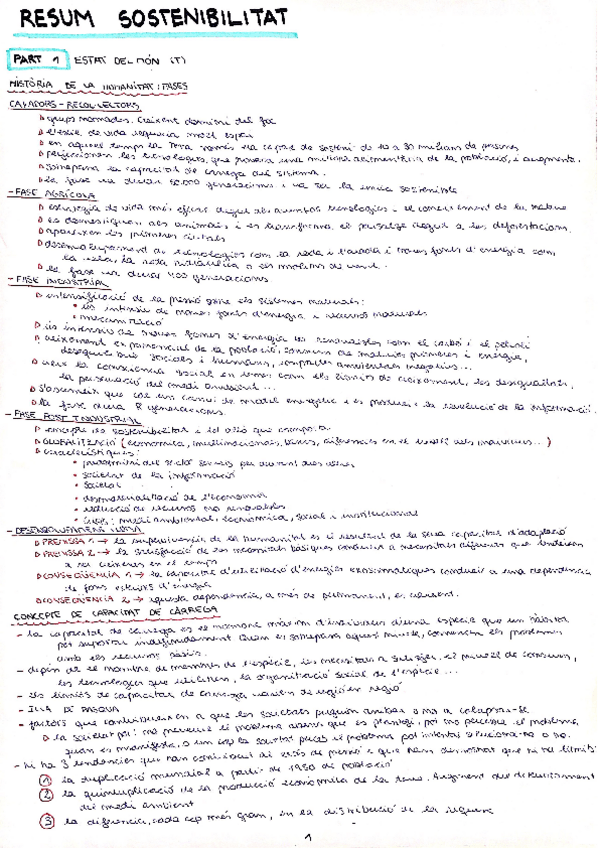 RESUM SOSTENIBILITAT
PART 1 ESTAT DEL MÓN (T)
HISTÒRIA DE LA HUMANITAT: FASES
CAÇADORS - RECOL·LECTORS
grups nòmades. Creixent domini del foc
l'èxit de vida seguia molt
en aquell temps la Terra només era capaç de sostenir de 10 a 30 milions de persones
perfeccionen les tecnologies, que provoca una millora alimentària de la població, i augmenta.
sobrepassa la capacitat de càrrega del sistema.
la fase va durar generacions i va ser la única sostenible
- FASE AGRÍCOLA
estratègia de vida més efectiva degut als avenços tecnològics i el coneixement de la natura
es domestiquen els animals i es transforma el paisatge degut a les deforestacions.
apareixen les primeres ciutats
desenvolupament de tecnologies com la roda i l'arada i noves fonts d'energia com
la vela, la roda hidràulica o els molins de vent.
la fase va durar 400 generacions
- FASE INDUSTRIAL
intensificació de la pressió sobre els sistemes naturals:
ús intensiu de noves fonts d'energia i recursos naturals
mecanització
ús intensiu de noves formes d'energia no renovables com el carbó i el petroli
creixement exponencial de la població, consum de matèries primeres i energia,
desequilibris socials i humans, impactes ambientals negatius...
neix la consciència social en temes com els límits de creixement, les desigualtats,
la preservació del medi ambient...
S'assumeix que cal un canvi de model energètic i es produeix la revolució de la informació.
la fase dura 8 generacions.
- FASE POST INDUSTRIAL
concepte de sostenibilitat i tot allò que comporta
GLOBALITZACIÓ (econòmica, multinacionals, bancs, diferències en el dels ...)
característiques:
predomini del sector serveis per davant dels altres
societat de la informació
societat
desmaterialització de l'economia
reducció de recursos no renovables
crisis: medi ambiental, econòmica, social i institucional
- DESENVOLUPAMENT HUMÀ
PREMISSA 1 → la supervivència de la humanitat és el resultat de la seva capacitat d'adaptació
PREMISSA 2 → la satisfacció de les necessitats bàsiques condueix a necessitats diferents que tendeixen
a ser creixents en el temps
CONSEQÜÈNCIA 1 → la capacitat d'utilització d'energies exosomàtiques condueix a una dependència
de fonts exteriors d'energia
CONSEQÜÈNCIA 2 → aquesta dependència, a més de permanent, és creixent.
CONCEPTE DE CAPACITAT DE CÀRREGA
- la capacitat de càrrega és el nombre màxim d'individus d'una espècie que un hàbitat
pot suportar indefinidament. Quan es sobrepassa aquest nivell, comencen els problemes
amb els recursos bàsics.
- depèn de el nombre de membres de l'espècie, les necessitats a satisfer, el nivell de consum,
les tecnologies que utilitzen, la organització social de l'espècie...
- els límits de capacitat de càrrega varien de regió en regió
- ILLA DE PASQUA
- factors que contribueixen a que les societats puguin arribar o no a colapsar-se
la societat pot: no preveure el problema abans que es plantegi, pot no percebre el problema,
quan es manifesta, o un cop la societat percep el problema pot intentar solucionar-ho o no.
- hi ha 3 tendències que han contribuït al excés de pressió i que han demostrat que hi ha límits:
1 la duplicació mundial a partir de 1950 de població
2 la quintuplicació de la producció econòmica de la terra. Augment del deteriorament
del medi ambient
3 la diferència, cada cop més gran, en la distribució de la riquesa
1